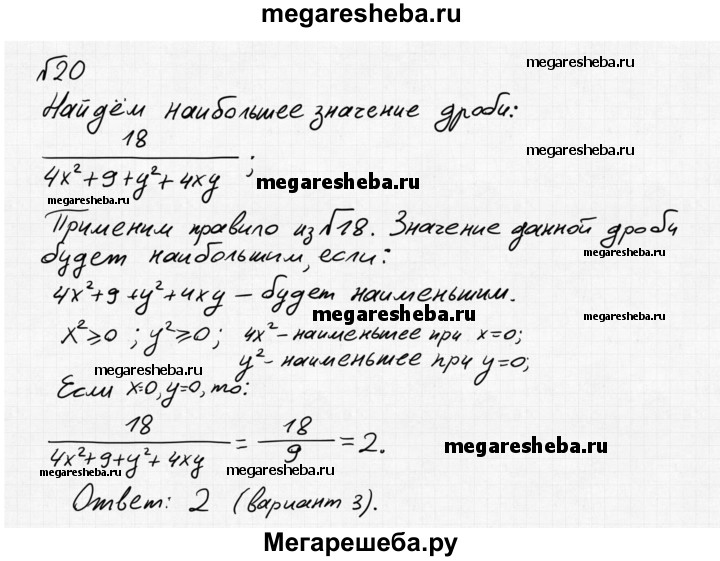 megaresheba.ru
№20 megaresheba.ru
Найдём наибольшее значение дроби:
18 megaresheba.ru
4x²+9+y²+4xy ; megaresheba.ru
megaresheba.ru
Применим правило из №18. Значение данной дроби
будет наибольшим, если: megaresheba.ru
4x²+9+y²+4xy – будет наименьшим.
megaresheba.ru megaresheba.ru
x²⩾0 ; y²⩾0; 4x² – наименьшее при x=0;
megaresheba.ru y² – наименьшее при y=0;
Если x=0, y=0, то:
18 / 4x²+9+y²+4xy = 18 / 9 = 2. megaresheba.ru
megaresheba.ru megaresheba.ru
Ответ: 2 (вариант 3).
Мегарешеба.ру